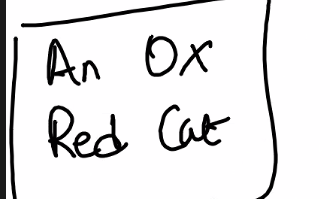 An Ox
Red Cat